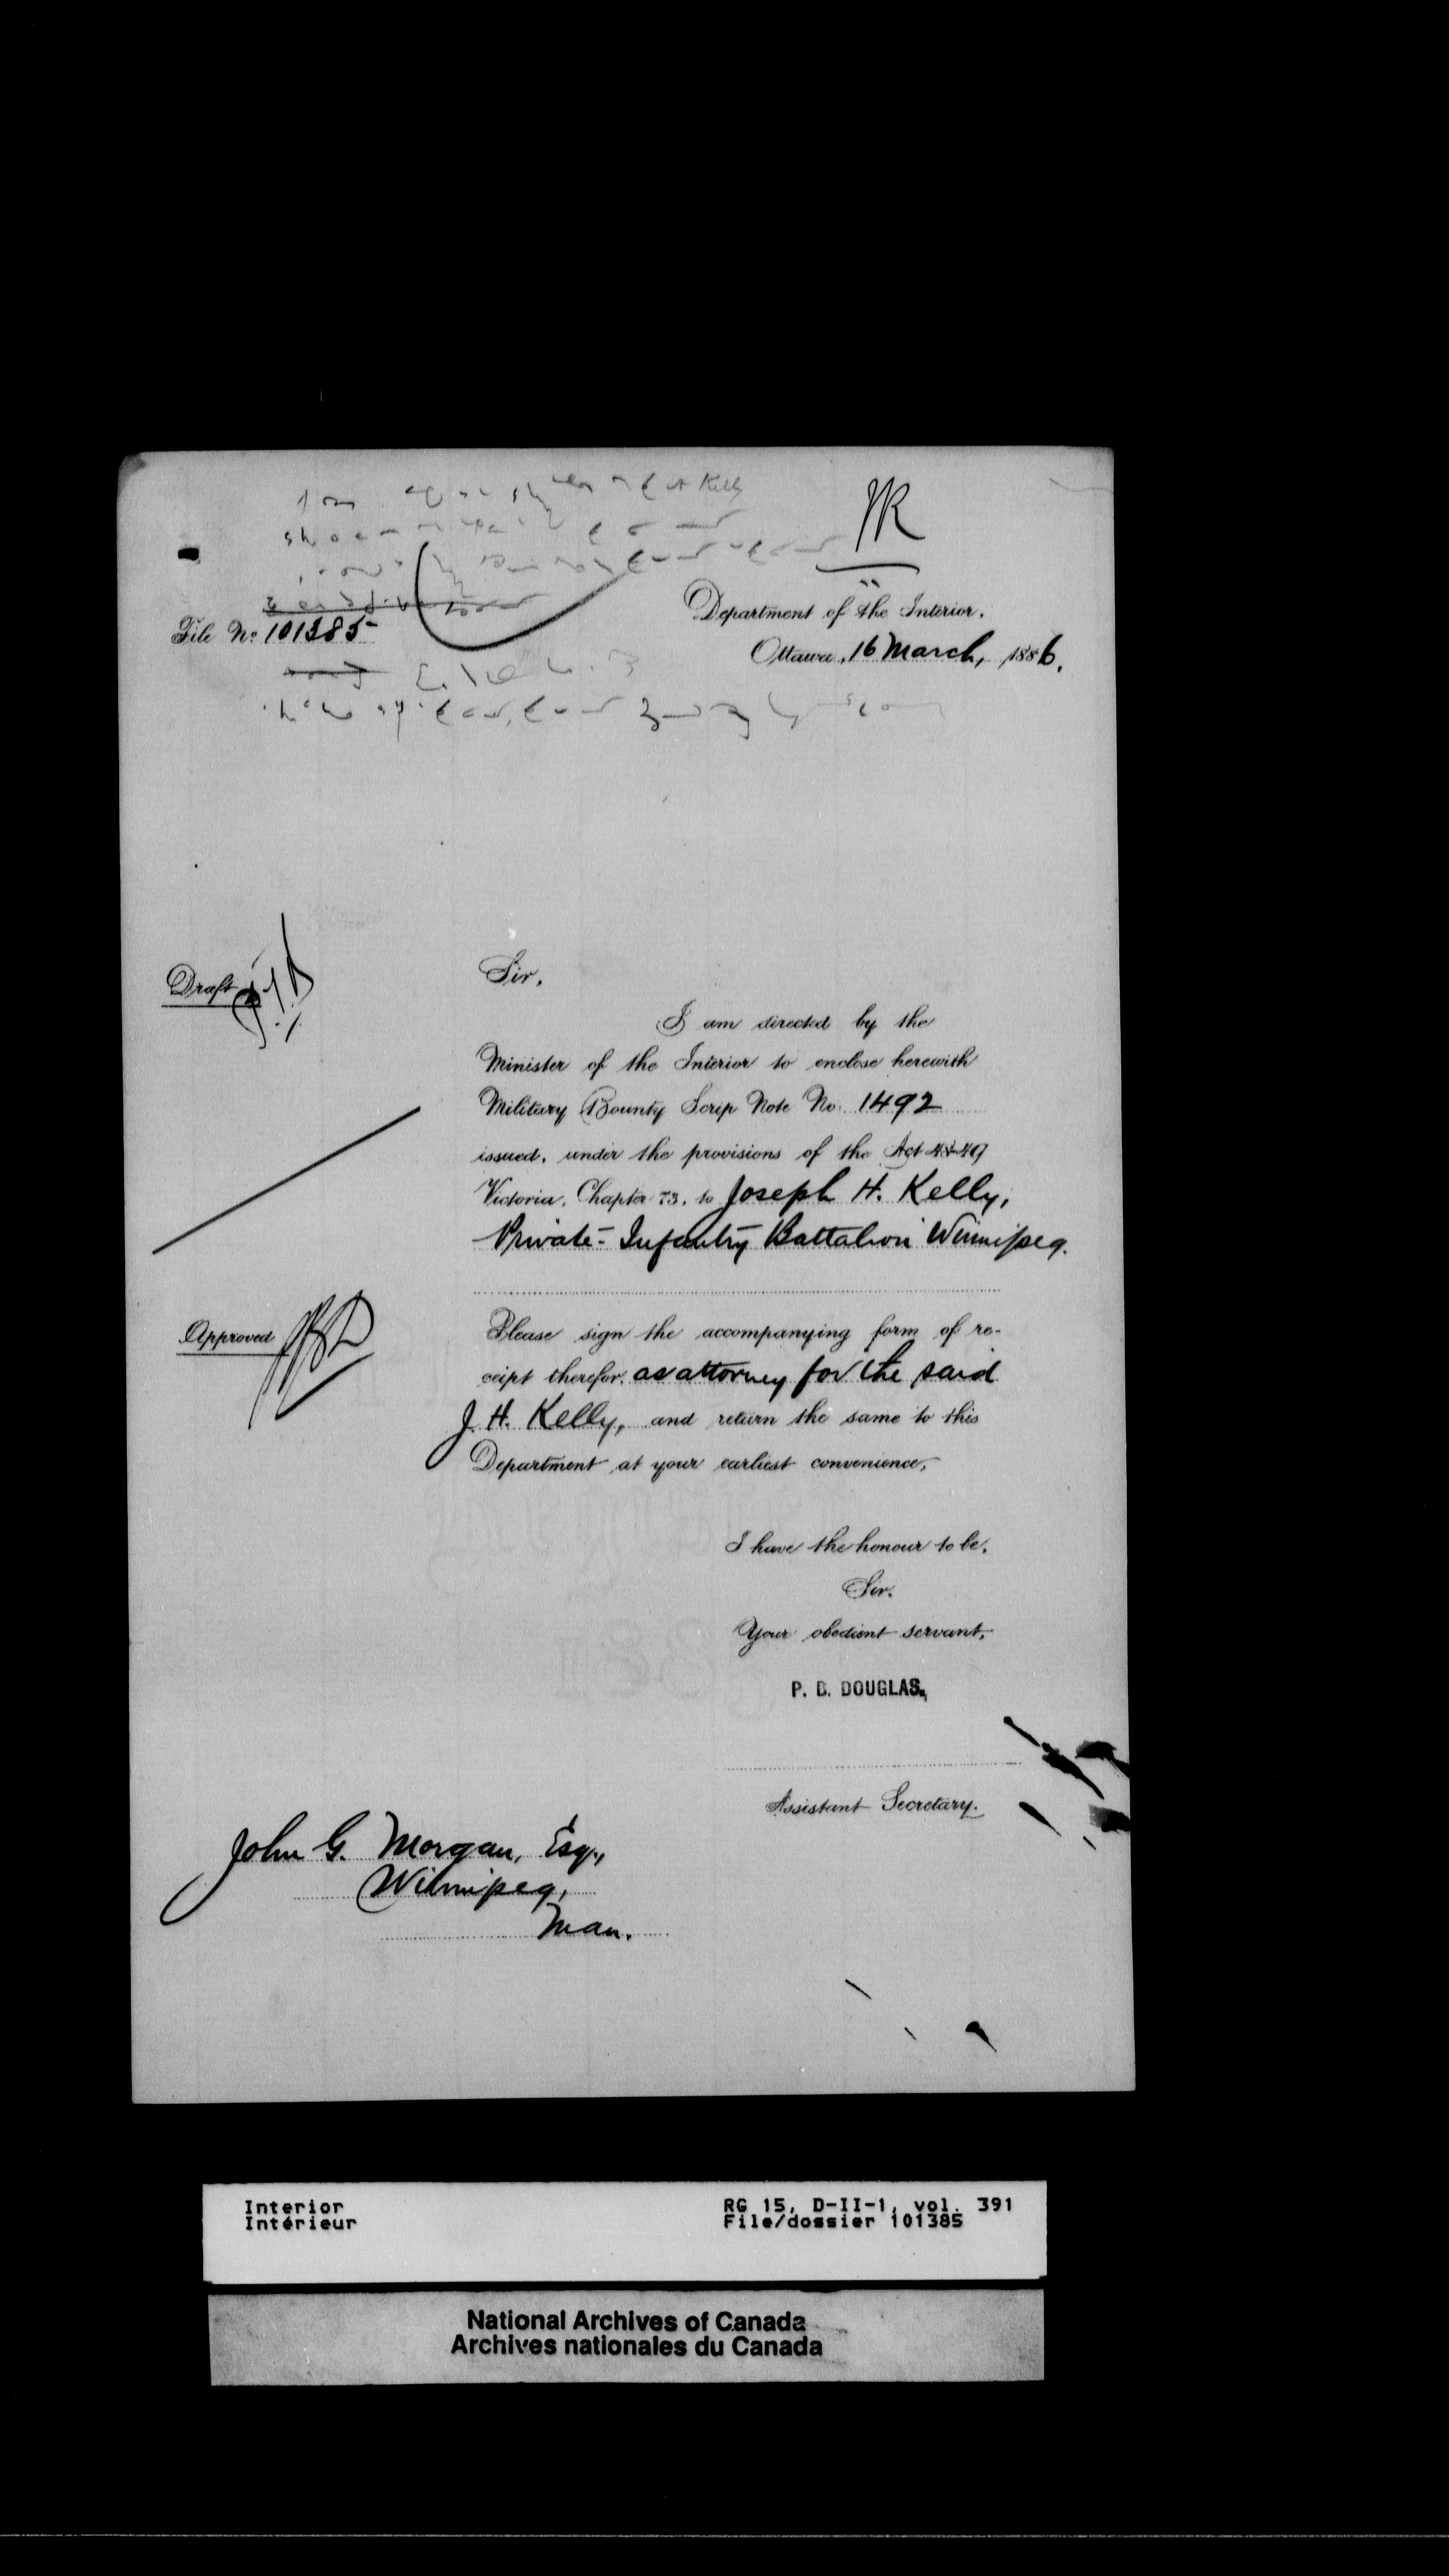 Kelly
Department of the Interior.
File No. 101385
Ottawa, 16 March, 1886.
Draft
Sir,
I am directed by the
Minister of the Interior to enclose herewith
Military Bounty Scrip Note No. 1492
issued, under the provisions of the Act 48-49
Victoria, Chapter 73, to Joseph H. Kelly,
Private - Infantry Battalion Winnipeg.
Approved
Please sign the accompanying form of re-
ceipt therefor, as attorney for the said
J. H. Kelly, and return the same to this
Department at your earliest convenience,
I have the honour to be,
Sir,
Your obedient servant,
P. B. DOUGLAS,
Assistant Secretary.
John G. Morgan, Esq.,
Winnipeg,
Man.
Interior
Intérieur
RG 15, D-II-1, vol. 391
File/dossier 101385
National Archives of Canada
Archives nationales du Canada